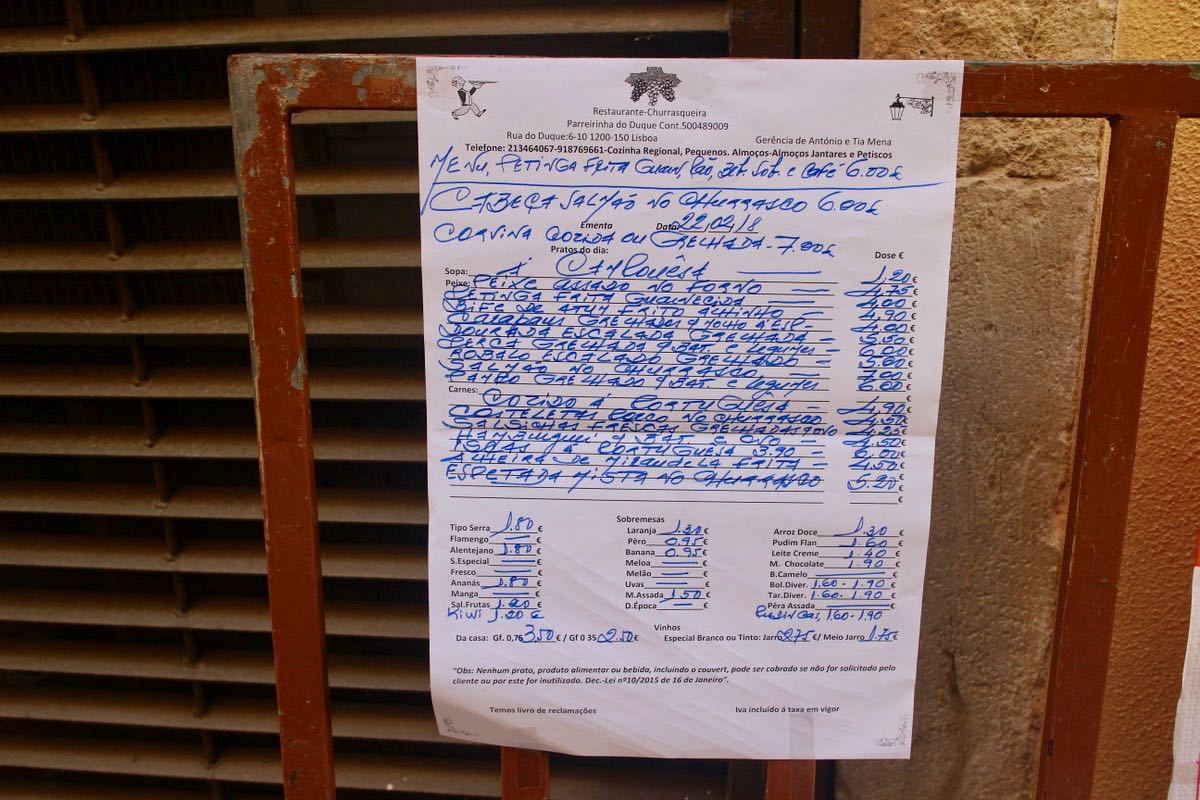 Restaurante-Churrasqueira
Parreirinha do Duque Cont.500489009
Rua do Duque:6-10 1200-150 Lisboa Gerência de António e Tia Mena
Telefone: 213464067-918769661-Cozinha Regional, Pequenos. Almoços-Almoços Jantares e Petiscos
MENU, PETINGA FRITA Guarn, Pão, Beb. Sob. e Café 6.00€
CABEÇA SALMÃO NO CHURRASCO 6.00€
Ementa Data 22/02/18
CORVINA COZIDA OU GRELHADA - 7.00€
Pratos do dia: Dose €
Sopa: Á CAMPONÊSA 1.20€
Peixe: PEIXE ASSADO NO FORNO 4.75€
PETINGA FRITA GUARNECIDA 4,00€
BIFE DE ATUM FRITO 4.90€
GRELHADOS MOLHO Á ESP- 4.00€
DOURADA ESCALADA GRELHADA - 5.50€
PERCA GRELHADA BAT e legumes 6.00€
ROBALO ESCALADO GRELHADO - 5.80€
SALMÃO NO CHURRASCO 7.00€
PAMPO GRELHADO BAT e legumes 6.00€
Carnes: COZIDO Á PORTUGUÊSA - 4,90€
COSTELETAS PORCO NO CHURRASCO 4,50€
SALSICHAS FRESCAS GRELHADAS OVO 4.25€
HAMBURGUER BAT e OVO - 4.50€
ISCAS Á PORTUGUESA 3.90 - 6,00€
ALHEIRA DE MIRANDELA FRITA - 4.50€
ESPETADA MISTA NO CHURRASCO 5.20€
€
Sobremesas
Tipo Serra 1.80 € Laranja 1.30 € Arroz Doce 1.30 €
Flamengo € Pêro 0.95 € Pudim Flan 1.60 €
Alentejano 1.80 € Banana 0.95 € Leite Creme 1.40 €
S.Especial € Meloa € M. Chocolate 1.90 €
Fresco € Melão € B.Camelo €
Ananás 1.80 € Uvas € Bol.Diver. 1.60 - 1.90 €
Manga € M.Assada 1.50 € Tar.Diver. 1.60 - 1.90 €
Sal.Frutas 1.20 € D.Época € Pêra Assada €
Kiwi 1.20 € 1.60 - 1.90
Vinhos
Da casa: Gf. 0,76 3.50 € / Gf 0 35 2.50 € Especial Branco ou Tinto: Jarro 2.75 €/ Meio Jarro 1.75 €
"Obs: Nenhum prato, produto alimentar ou bebida, incluindo o couvert, pode ser cobrado se não for solicitado pelo
cliente ou por este for inutilizado. Dec.-Lei nº10/2015 de 16 de Janeiro".
Temos livro de reclamações Iva incluído á taxa em vigor